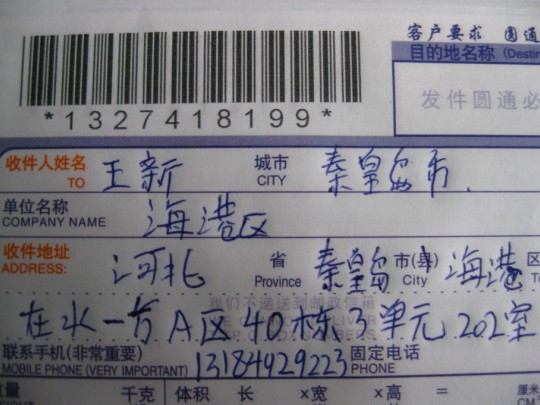 客户要求 圆通
目的地名称 (Destin
*1327418199*
发件圆通必
收件人姓名 王新 城市 秦皇岛市.
TO CITY
单位名称
COMPANY NAME 海港区
收件地址 河北 省 秦皇岛 市(县) 海港 区
ADDRESS: Province City To
我们不递送到邮政信箱
在水一方A区40栋3单元202室
联系手机(非常重要) 13184929223 固定电话
MOBILE PHONE (VERY IMPORTANT) PHONE
量 千克 体积 长 ×宽 ×高 = 厘米
CM